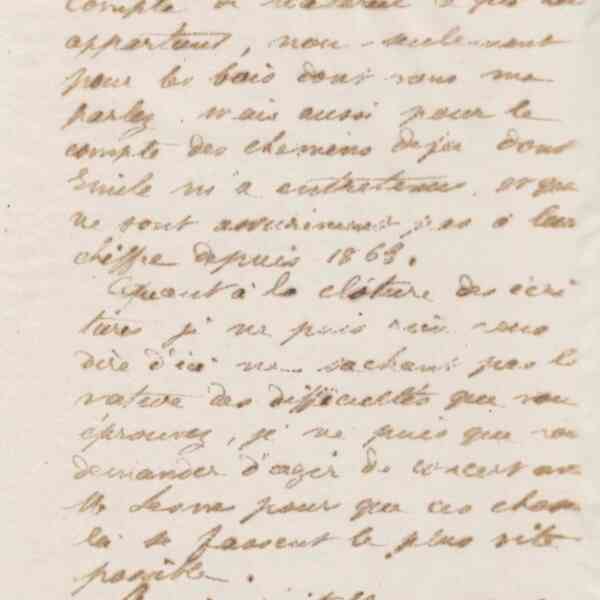 compte
appartient, non seulement
pour les bois dont vous me
parlez mais aussi pour le
compte des chemins deja dont
Emile m'a entretenu et que
ne sont assurément pas à leur
chiffre depuis 1863.
Quant à la clôture des écri
tures je ne puis rien vous
dire d'ici ne sachant pas la
nature des difficultés que vou
éprouvez, je ne puis que vou
demander d'agir de concert av
pour que ces chose
là se fassent le plus vite
possible.